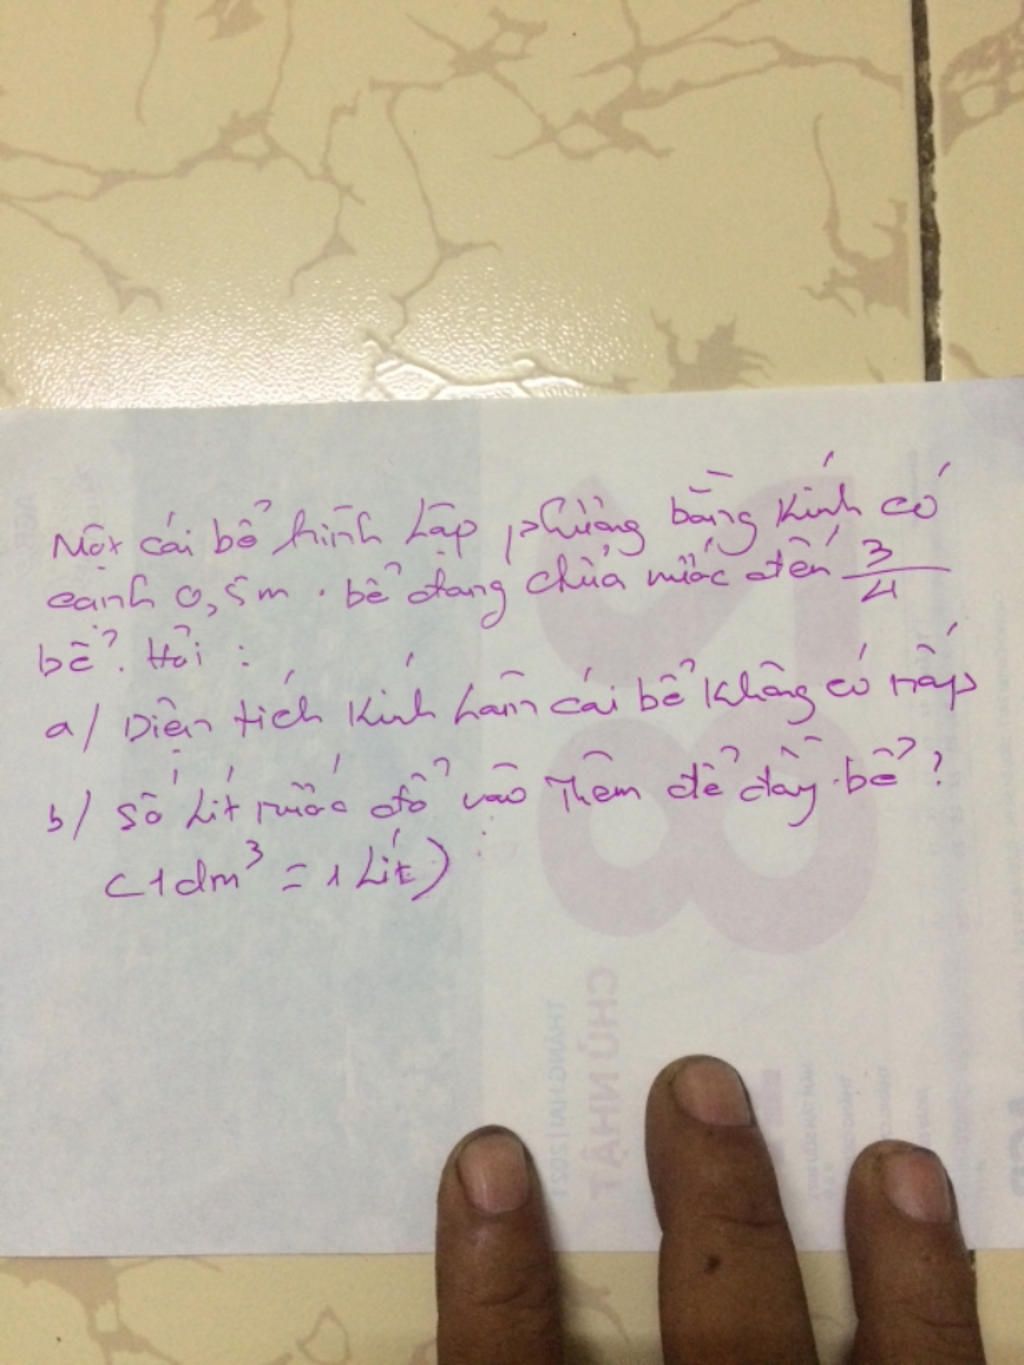 Một cái bể hình lập phương bằng kính có
cạnh 0,5m. bể đang chứa nước đến 3/4
bể. Hỏi :
a/ Diện tích kính làm cái bể không có nắp
b/ Số lít nước đổ vào thêm để đầy bể ?
(1dm³ = 1 lít)
CHỦ NHẬT
THÁNG HAI 2021